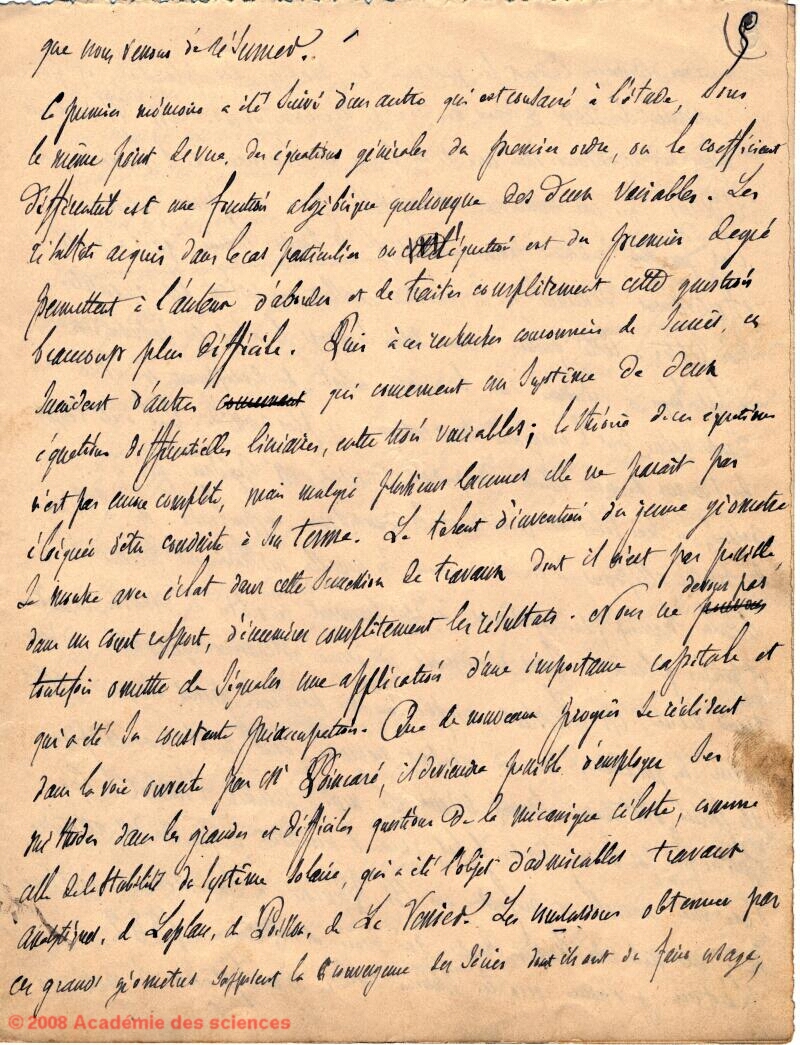 5
que nous venons de résumer.
Ce premier mémoire a été suivi d'un autre qui est consacré à l'étude, sous
le même point de vue, des équations générales du premier ordre, ou le coefficient
différentiel est une fonction algébrique quelconque des deux variables. Les
résultats acquis dans le cas particulier ou l'équation est du premier degré
permettent à l'auteur d'aborder et de traiter complètement cette question
beaucoup plus difficile. Puis à ces recherches couronnées de succès, en
succèdent d'autres concernent qui concernent un système de deux
équations différentielles linéaires, entre trois variables; la théorie de ces équations
n'est pas encore complète, mais malgré plusieurs lacunes elle ne parait pas
éloignée d'être conduite à son terme. Le talent d'invention du jeune géomètre
se montre avec éclat dans cette succession de travaux dont il n'est pas possible,
dans un court rapport, d'énumérer complètement les résultats. Nous ne pouvons devons pas
toutefois omettre de signaler une application d'une importance capitale et
qui a été sa constante préoccupation. Que de nouveaux progrès se réalisent
dans la voie ouverte par Mr Poincaré, il deviendra possible d'employer ses
méthodes dans les grandes et difficiles questions de la mécanique céleste, comme
celle de la stabilité du système solaire, qui a été l'objet d'admirables travaux
analytiques, de Laplace, de Poisson, de Le Verrier. Les solutions obtenues par
ces grands géomètres supposent la convergence des séries dont ils ont du faire usage,
© 2008 Académie des sciences